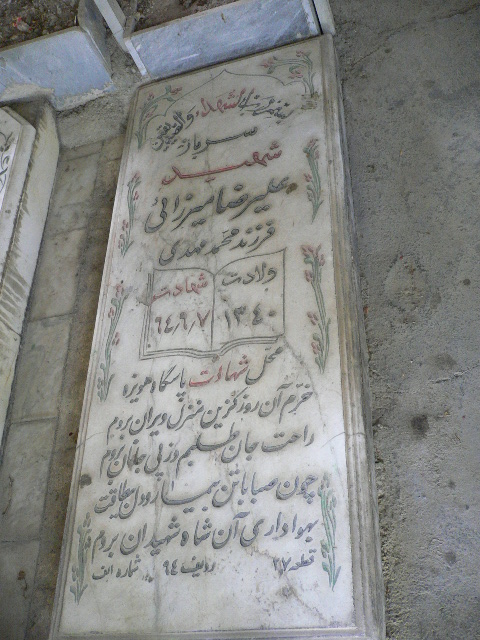 بسم رب الشهداء والصدیقین
سرباز
شهید
علیرضا میرزائی
فرزند محمد مهدی
ولادت شهادت
۱۳۴۰ ۶۴/۹/۷
محل شهادت پاسگاه هویزه
خرم آن روز کزین منزل ویران بروم
راحت جان طلبم وز پی جانان بروم
چون صبا با تن بیمار و دل بیطاقت
بهواداری آن شاه شهیدان بروم
قطعه ۲۷ ردیف ۹۴ شماره الف